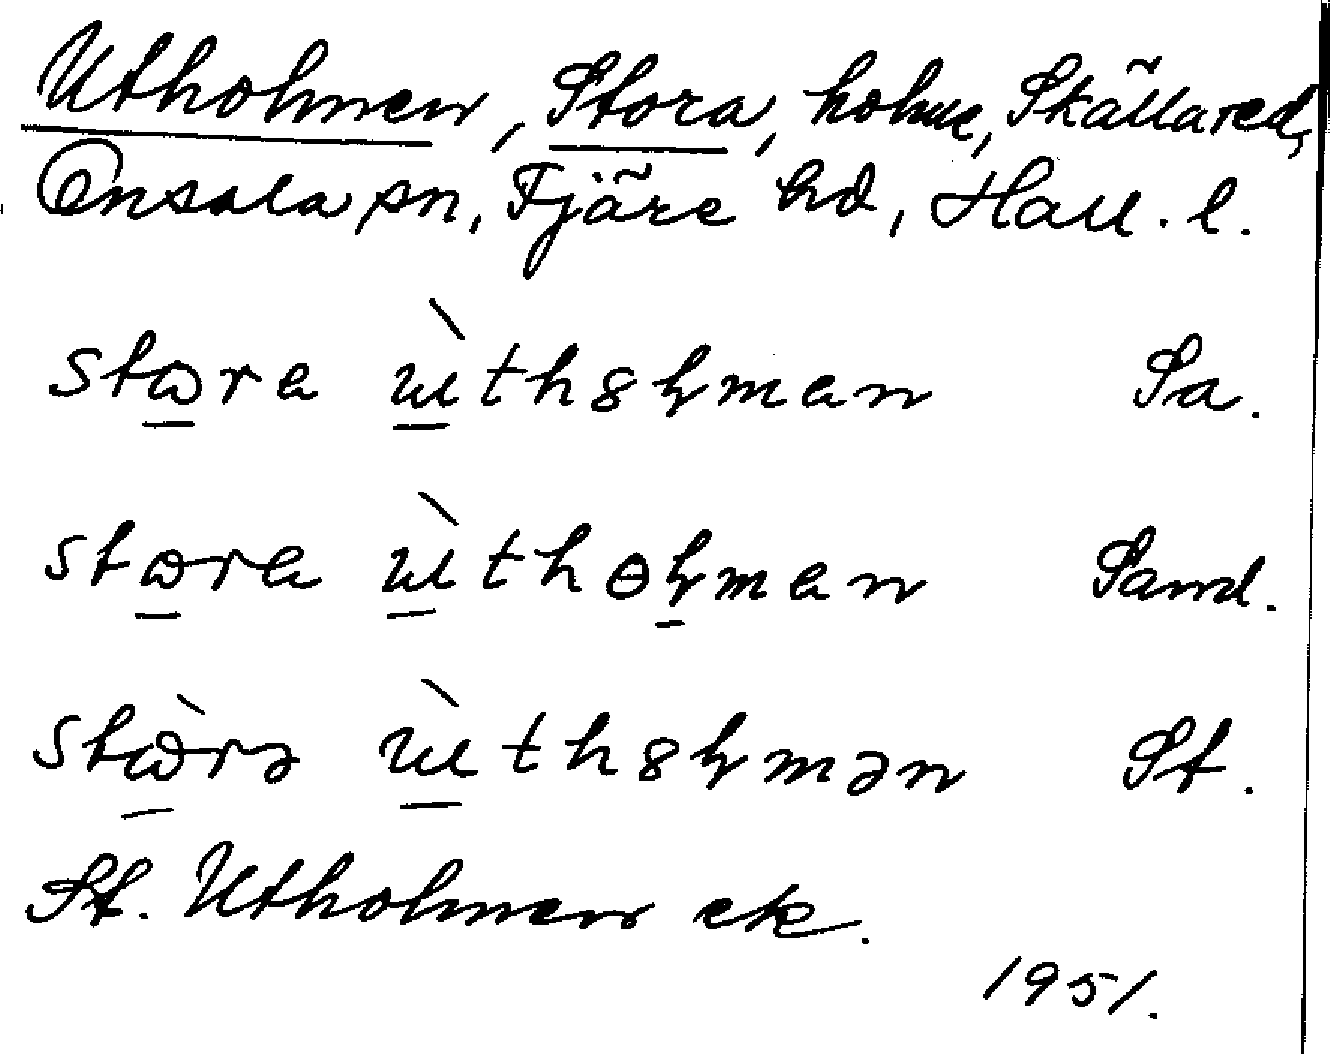 Utholmen, Stora, holme, Skällared,
Onsala sn, Fjäre hd, Hall. l.
stωra ùth8ɫman Sa.
stωra ùthɵɫman Sand.
stὼrə ùth8ɫmən St.
St. Utholmen ek.
1951.